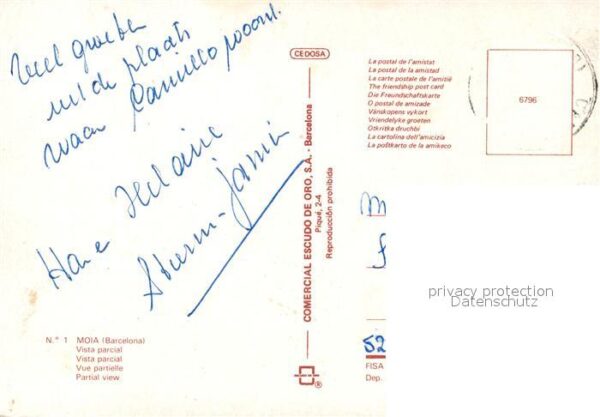 Veel groeten
uit de plaats
waar Camillo woont.
Hans Helaine
Sturm-Jamin
N.° 1 MOIA (Barcelona)
Vista parcial
Vista parcial
Vue partielle
Partial view
CEDOSA
COMERCIAL ESCUDO DE ORO, S.A. - Barcelona
Piqué, 2-4
Reproducción prohibida
®
La postal de l'amistat
La postal de la amistad
La carte postale de l'amizié
The friendship post card
Die Freundschaftskarte
O postal de amizade
Vänskopens vykort
Vriendelyke groeten
Otkritka druchbi
La cartolina dell'amicizia
La poŝtkarto de la amikeco
6796
M
f
52
FISA
Dep.
privacy protection
Datenschutz